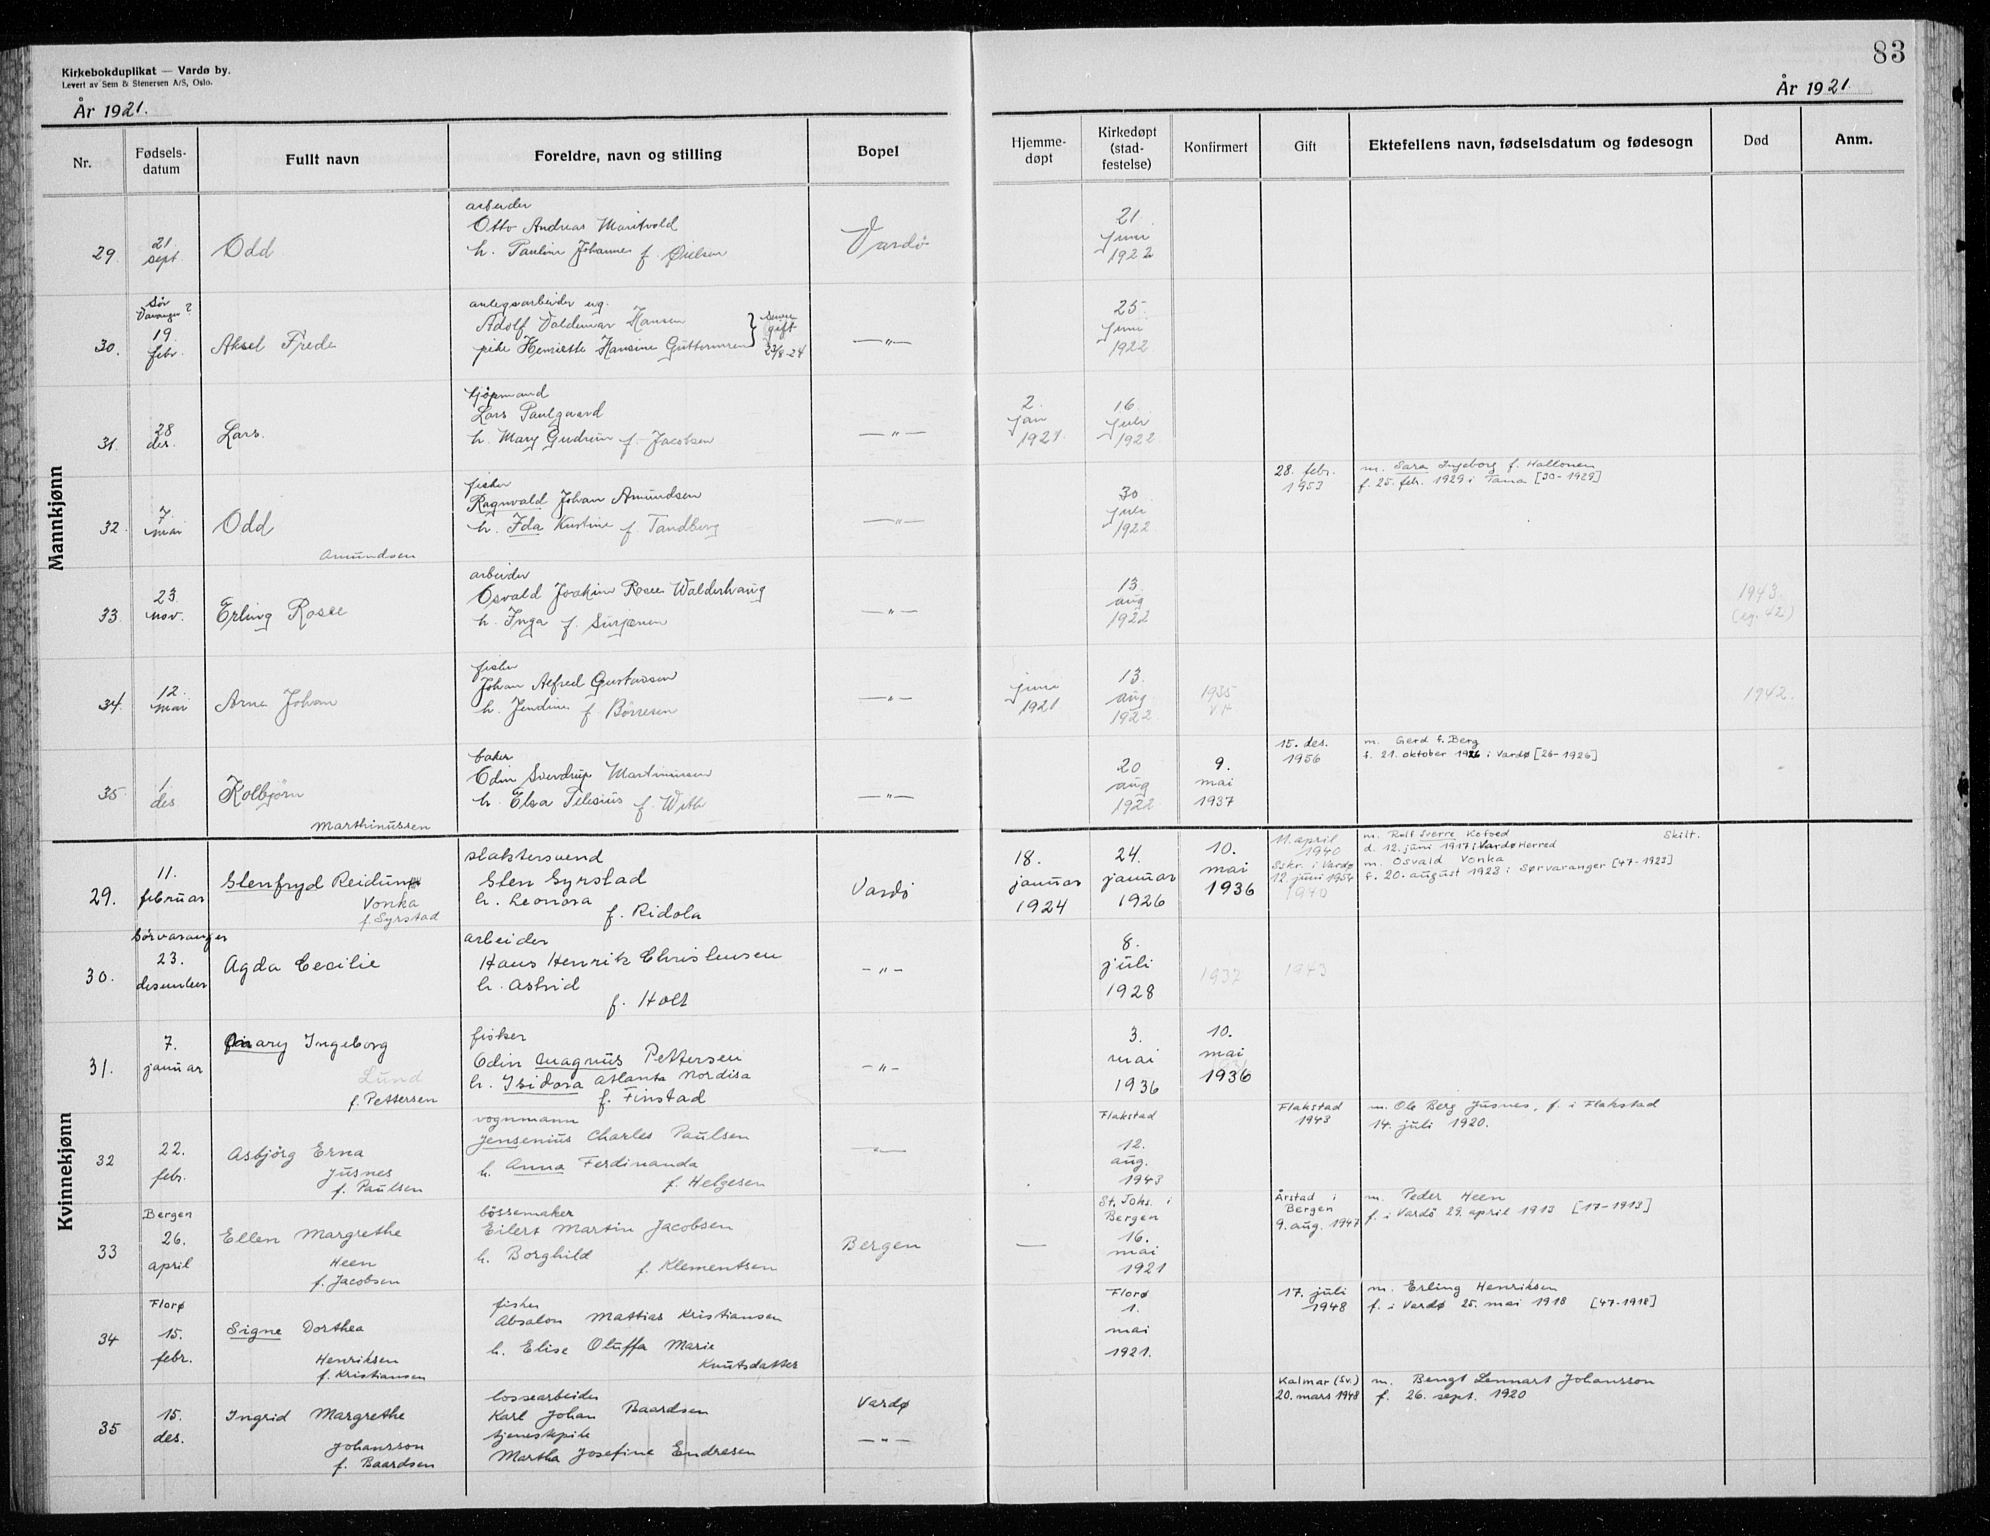 83
Kirkebokduplikat — Vardø by.
Levert av Sem & Stenersen A/S, Oslo.
År 1921.
År 1921.
Nr. Fødsels-datum Fullt navn Foreldre, navn og stilling Bopel Hjemme-døpt Kirkedøpt (stad-festelse) Konfirmert Gift Ektefellens navn, fødselsdatum og fødesogn Død Anm.
Mannkjønn
arbeider
Otto Andreas
29. 21. sept. Odd h. Pauline Johannes f. Vardø 21. juni 1922
Sør Varanger ?
anlegsarbeider ug.
Adolf Valdemar Hansen
30. 19. febr. Aksel Frede pike Henriette Hansine Guttormsen } senere gift 23/8-24 —„— 25. juni 1922
kjøpmand
Lars Paulgaard
31. 28 des. Lars. h. Mary Gudrun f. Jacobsen —„— 2. jan 1921. 16. juli 1922
fisker
Ragnvald Johan Amundsen
32. 7. mai Odd h. Ida Kristine f. Tandberg —„— 30 juli 1922
Amundsen
28. febr. 1953
m. Sara Ingeborg f. Hallonen
f. 25. febr. 1929 i Tana [30-1929]
arbeider
Osvald Joakim Rosee Walderhaug
33. 23. nov. Erling Rosee h. Inga f. —„— 13. aug 1922 1943. (eg. 42)
fisker
Johan Alfred Gustavsen
34. 12. mai Arne Johan h. Jendine f. Børresen —„— juni 1921 13. aug 1922 1935 1942.
baker
Odin Sverdrup Martinussen
35 1. des Kolbjørn h. Elsa Telesius f. With —„— 20 aug 1922 9. mai 1937
Marthinussen
15. des. 1956
m. Gerd f. Berg
f. 21. oktober 1926 i Vardø [26-1926]
Kvinnekjønn
slaktersvend
29. 11. februar Glenfryd Reidun Glen Syrstad Vardø 18. januar 1924 24. januar 1926 10. mai 1936
Vonka h. Leonora
f. Syrstad f. Ridola
11. april 1940
m. Rolf Sverre Kofoed Skilt.
d. 12. juni 1917 i Vardø Herred
Sskr. i Vardø 12. juni 1954
m. Osvald Vonka
f. 20. august 1923 i Sørvaranger [47-1923]
1940
Sørvaranger
arbeider
30. 23. desember Agda Cecilie Hans Henrik Christensen —„— 8. juli 1928 1937 1943
h. Astrid
f. Holt
31. 7. januar Mary Ingeborg fisker
Odin Magnus Pettersen —„— 3. mai 1936 10. mai 1936
Lund h. Isidora Atlanta Nordisa
f. Pettersen f. Finstad
vognmann
32 22. febr. Asbjörg Erna Jensenius Charles Paulsen —„— Flakstad 12. aug. 1943
Jusnes h. Anna Ferdinanda
f. Paulsen f. Helgesen
Flakstad 1943
m. Ole Berg Jusnes, f. i Flakstad
14. juli 1920.
Bergen
bössemaker
33 26. april Ellen Margrethe Eilert Martin Jacobsen Bergen — St. Johs. i Bergen 16. mai 1921
Heen h. Borghild
f. Jacobsen f. Klementsen
Årstad i Bergen 9. aug. 1947
m. Peder Heen
f. i Vardö 29. april 1913 [17-1913]
Florø
fisker
34 15. febr. Signe Dorthea Absalon Mattias Kristiansen Florø 1. mai 1921.
Henriksen h. Elise Oluffa Marie
f. Kristiansen Knutsdatter
17. juli 1948
m. Erling Henriksen
f. i Vardø 25. mai 1918 [47-1918]
lossearbeider
35 15. des. Ingrid Margrethe Karl Johan Baardsen Vardø
tjenestepike
Johansson Martha Josefine Endresen —„—
f. Baardsen
Kalmar (Sv.) 20. mars 1948
m. Bengt Lennart Johansson
f. 26. sept. 1920